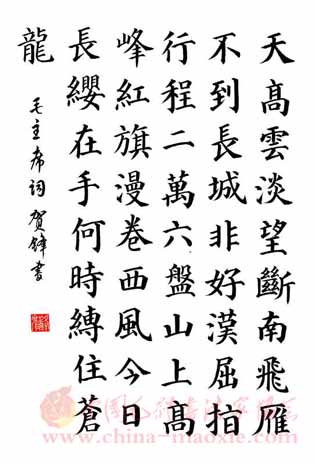 天髙雲淡望斷南飛雁
不到長城非好漢屈指
行程二萬六盤山上髙
峰紅旗漫卷西風今日
長纓在手何時縛住蒼
龍
毛主席詞賀鋒書
www.china-maoxie.com